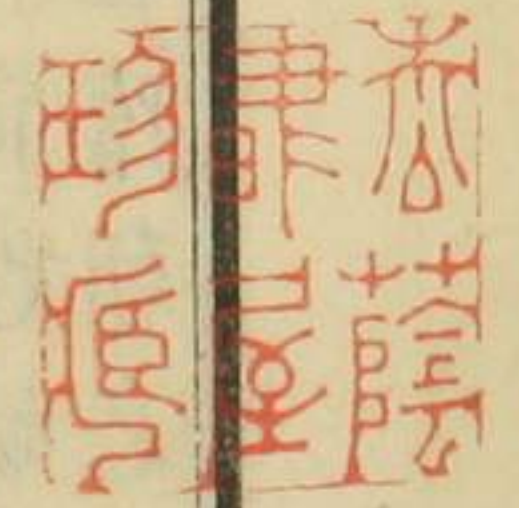 杏蔭
書屋
珍藏